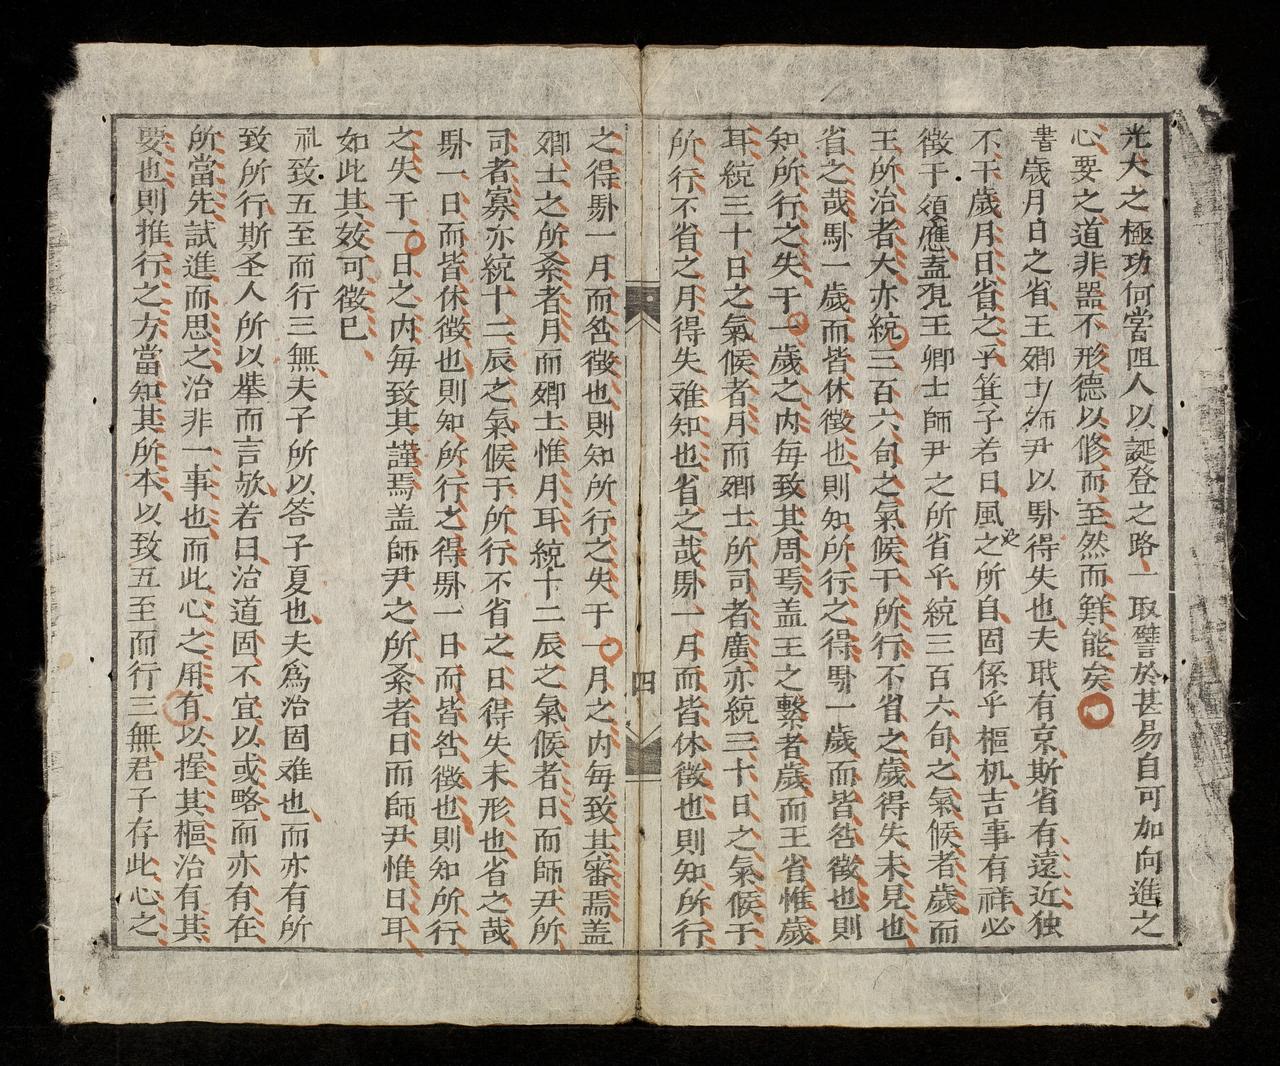 光大之極功何嘗阻人以誕登之路一取譬於甚易自可加向進之
心要之道非器不形德以修而至然而鮮能矣
書歲月日之省王卿士師尹以馭得失也夫職有京斯省有遠近独
不干歲月日省之乎箕子若曰風之所自固係乎樞机吉事有祥必
徵于須應盍覌王卿士師尹之所省乎統三百六旬之氣候者歲而
王所治者大亦統三百六旬之氣候于所行不省之歲得失未見也
省之哉馭一歲而皆休徵也則知所行之得馭一歲而皆咎徵也則
知所行之失于一歲之内每致其周焉盖王之繫者歲而王省惟歲
耳統三十日之氣候者月而卿士所司者廣亦統三十日之氣候于
所行不省之月得失难知也省之哉馭一月而皆休徵也則知所行
四
之得馭一月而咎徵也則知所行之失于一月之内每致其審焉盖
卿士之所系者月而卿士惟月耳統十二辰之氣候者日而師尹所
司者寡亦統十二辰之氣候于所行不省之日得失未形也省之哉
馭一日而皆休徵也則知所行之得馭一日而皆咎徵也則知所行
之失于一日之内每致其謹焉盖師尹之所系者日而師尹惟日耳
如此其效可徵已
礼致五至而行三無夫子所以答子夏也夫爲治固难也而亦有所
致所行斯圣人所以舉而言欤若曰治道固不宜以或略而亦有在
所當先試進而思之治非一事也而此心之用有以握其樞治有其
要也則推行之方當知其所本以致五至而行三無君子存此心之